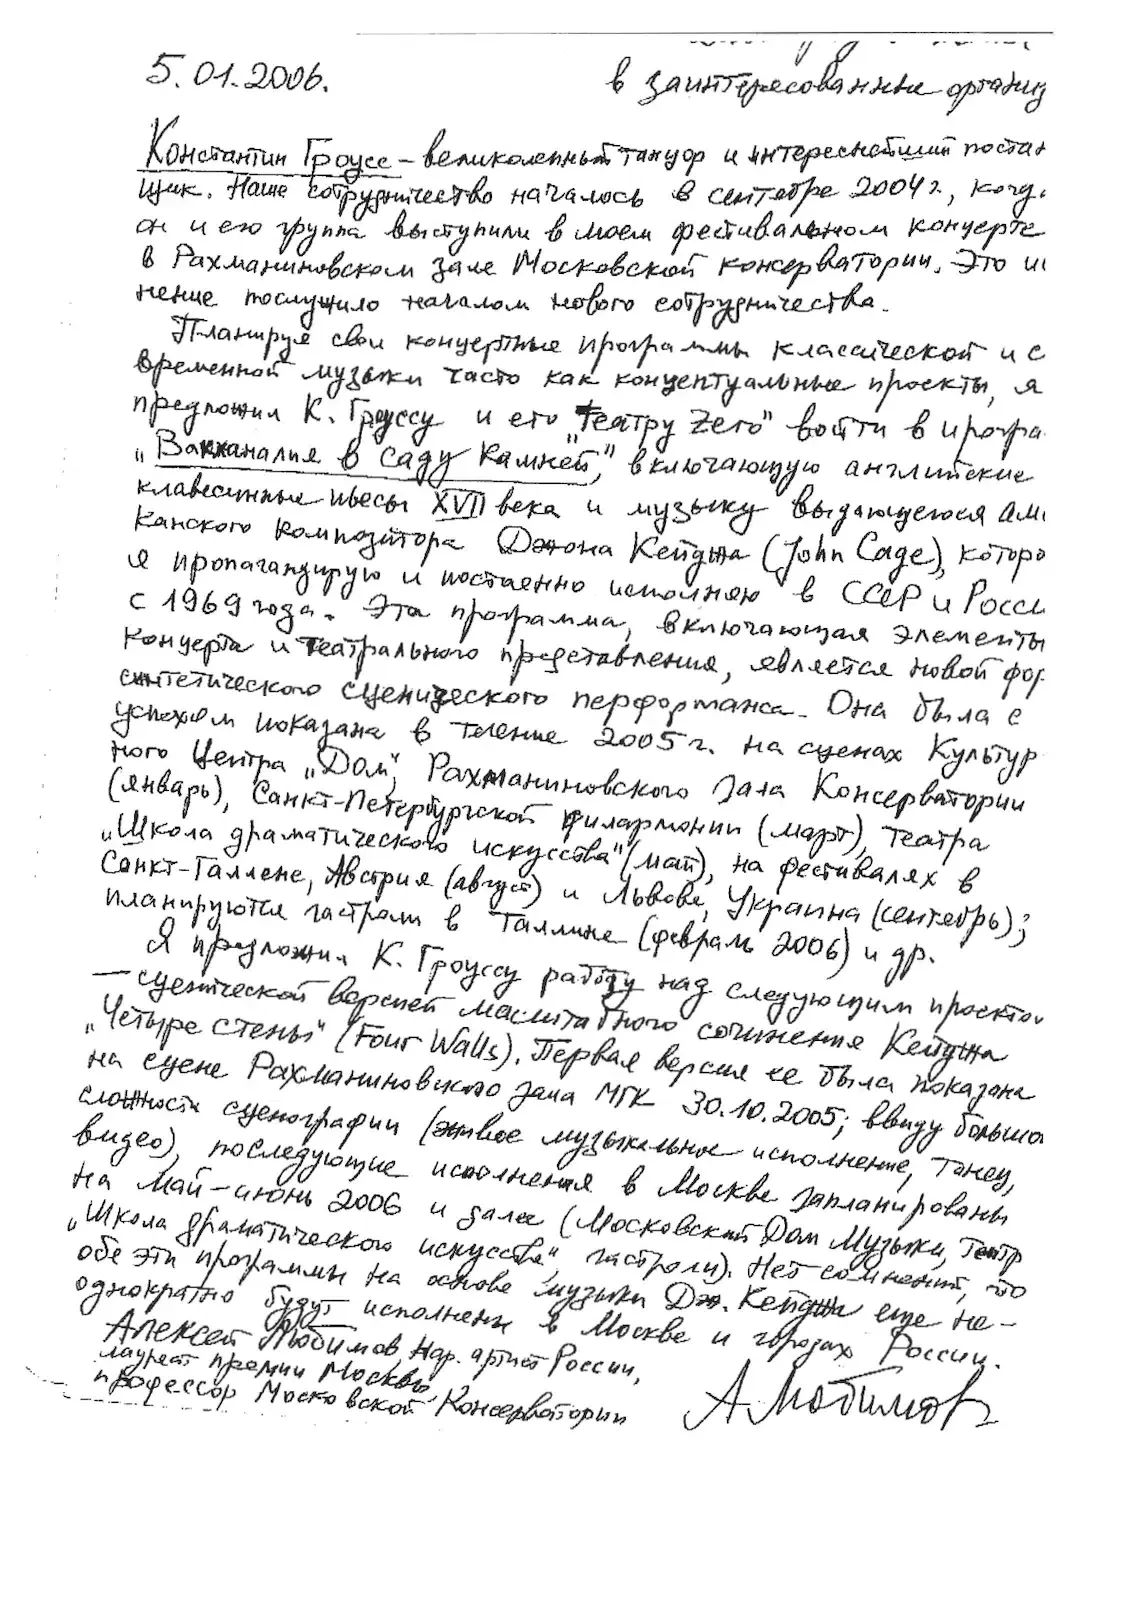 5.01.2006.
в заинтересованные организ
Константин Гроусс – великолепный танцор и интереснейший постан
щик. Наше сотрудничество началось в сентябре 2004 г., когд
он и его группа выступили в моем фестивальном концерте
в Рахманиновском зале Московской консерватории. Это
нение послужило началом нового сотрудничества.
Планируя свои концертные программы классической и с
временной музыки часто как концептуальные проекты, я
предложил К. Гроуссу и его "Театру Zero" войти в програ
„Вакханалия в саду камней", включающую английские
клавесинные пьесы XVII века и музыку выдающегося аме
канского композитора Джона Кейджа (John Cage), которо
я пропагандирую и постоянно исполняю в СССР и Росси
с 1969 года. Эта программа, включающая элементы
концерта и театрального представления, является новой фор
синтетического сценического перформанса. Она была с
успехом показана в течение 2005 г. на сценах Культур
ного Центра „Дом", Рахманиновского зала Консерватории
(январь), Санкт-Петербургской филармонии (март), театра
„Школа драматического искусства" (май), на фестивалях в
Санкт-Галлене, Австрия (август) и Львове, Украина (сентябрь);
планируются гастроли в Таллине (февраль 2006) и др.
Я предложил К. Гроуссу работу над следующим проектом
– сценической версией масштабного сочинения Кейджа
„Четыре стены" (Four Walls). Первая версия ее была показана
на сцене Рахманиновского зала МГК 30.10.2005; ввиду большо
сложности сценографии (живое музыкальное исполнение, танец,
видео), последующие исполнения в Москве запланированы
на май-июнь 2006 и далее (Московский Дом Музыки, театр
„Школа драматического искусства", гастроли). Нет сомнений, что
обе эти программы на основе музыки Дж. Кейджа еще не–
однократно будут исполнены в Москве и городах России.
Алексей Любимов, Нар. артист России,
лауреат премии Москвы,
профессор Московской Консерватории
А Любимов